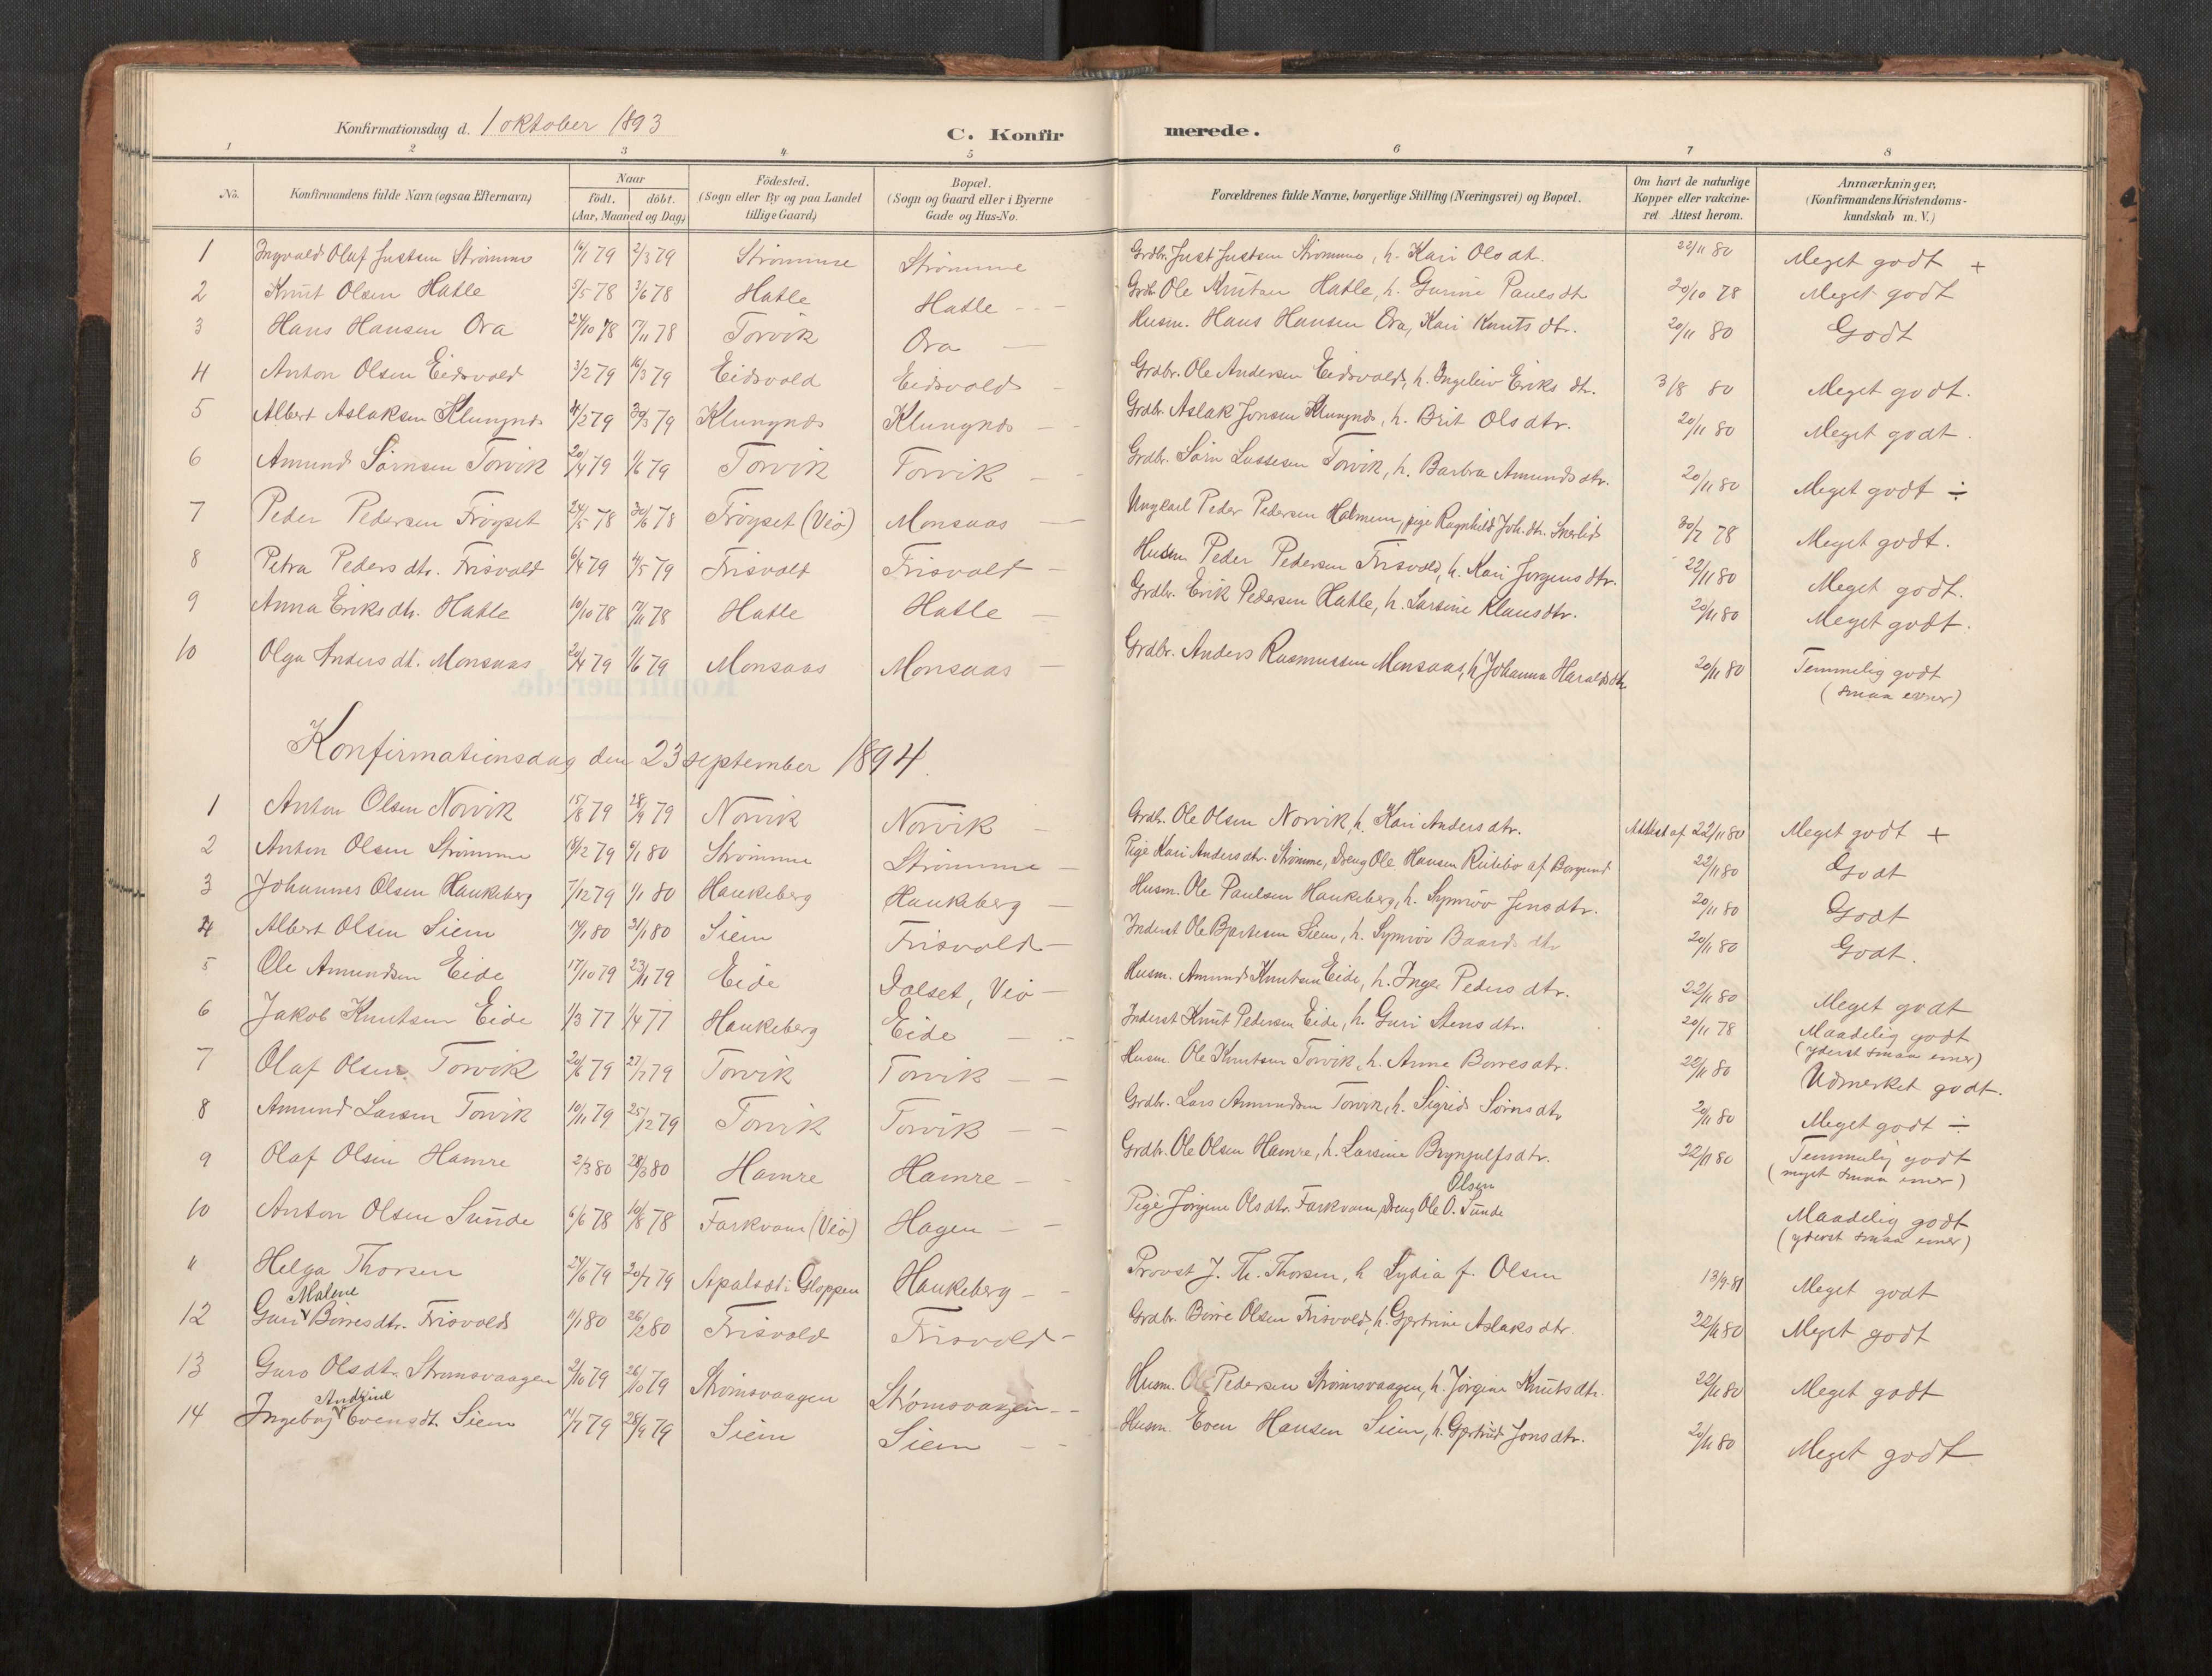 Konfirmationsdag d. 1 oktober 1893
C. Konfirmerede.
1 2 3 4 5 6 7 8
No. Konfirmandens fulde Navn (ogsaa Efternavn) Naar födt. döbt. (Aar, Maaned og Dag) Födested. (Sogn eller By og paa Landet tillige Gaard) Bopæl. (Sogn og Gaard eller i Byerne Gade og Hus-No. Forældrenes fulde Navne, borgerlige Stilling (Næringsvei) og Bopæl. Om havt de naturlige Kopper eller vakcineret Attest herom. Anmærkninger, (Konfirmandens Kristendomskundskab m. V.)
1 Ingvald Olaf Justsen Strömme 16/1 79 2/3 79 Strömme Strömme Grdbr. Just Justsen Strömme, h. Kari Olsdt. 22/11 80 Meget godt +
2 Knut Olsen Hatle 5/5 78 3/6 78 Hatle Hatle Grdb. Ole Knutsen Hatle, h. Gurine Paulsdt 20/10 78 Meget godt
3 Hans Hansen Ora 24/10 78 17/11 78 Torvik Ora Husm. Hans Hansen Ora, Kari Knutsdtr. 20/11 80 Godt
4 Anton Olsen Eidsvold 3/2 79 16/3 79 Eidsvold Eidsvold Grdbr. Ole Andersen Eidsvold, h. Ingeleiv Eriksdtr. 3/8 80 Meget godt.
5 Albert Aslaksen Klungnds 4/2 79 30/3 79 Klungnds Klungnds Grdbr. Aslak Jonsen Klungnds, h. Brit Olsdtr. 20/11 80 Meget godt.
6 Amund Sörnsen Torvik 20/4 79 1/6 79 Torvik Torvik Grdbr. Sörn Lassesen Torvik, h. Barbra Amundsdtr. 20/11 80 Meget godt ÷
7 Peder Pedersen Fröyset 24/5 78 30/6 78 Fröyset (Veö) Monsaas Ungkarl Peder Pedersen Holmem, pige Ragnhild Joh.dtr. 30/7 78 Meget godt.
8 Petra Pedersdtr. Frisvold 6/4 79 4/5 79 Frisvold Frisvold Husm Peder Pedersen Frisvold, h. Kari Jorgensdtr. 22/11 80 Meget godt.
9 Anna Eriksdtr. Hatle 10/10 78 17/11 78 Hatle Hatle Grdbr. Erik Pedersen Hatle, h. Larsine Klausdtr. 20/11 80 Meget godt.
10 Olga Andersdt. Monsaas 20/4 79 1/6 79 Monsaas Monsaas Grdbr. Anders Rasmussen Monsaas, h. Johanna Haraldsdtr 20/11 80 Temmelig godt
(smaa evner)
Konfirmationsdag den 23 september 1894.
1 Anton Olsen Norvik 15/8 79 28/9 79 Norvik Norvik Grdbr. Ole Olsen Norvik, h. Kari Andersdtr. Attest af 22/11 80 Meget godt +
2 Anton Olsen Strömme 18/12 79 6/1 80 Strömme Strömme Pige Kari Andersdtr. Strömme, Dreng Ole Hansen af Borgund 22/11 80 Godt
3 Johannes Olsen Haukeberg 7/12 79 1/1 80 Haukeberg Haukeberg Husm. Ole Paulsen Haukeberg, h. Synnöv Jensdtr. 20/11 80 Godt
4 Albert Olsen Siem 14/1 80 31/1 80 Siem Frisvold Inderst Ole Bjartesen Siem, h. Synnöv Baardsdtr 20/11 80 Godt.
5 Ole Amundsen Eide 17/10 79 23/11 79 Eide Dalset, Veö Husm. Amund Knutsen Eide, h. Inge Pedersdtr. 22/11 80 Meget godt
6 Jakob Knutsen Eide 1/3 77 1/4 77 Haukeberg Eide Inderst Knut Pedersen Eide, h. Guri Stensdtr. 20/11 78 Maadelig godt
(yderst smaa evner)
7 Olaf Olsen Torvik 20/6 79 27/7 79 Torvik Torvik Husm. Ole Knutsen Torvik, h. Anne Borresdtr. 22/11 80 Udmerket godt.
8 Amund Larsen Torvik 10/11 79 25/12 79 Torvik Torvik Grdbr. Lars Amundsen Torvik, h. Sigrid Sörnsdtr 20/11 80 Meget godt ÷
9 Olaf Olsen Hamre 2/3 80 28/3 80 Hamre Hamre Grdbr. Ole Olsen Hamre, h. Larsine Brynjulfsdtr. 22/11 80 Temmelig godt
(meget smaa evner)
10 Anton Olsen Sunde 6/6 78 10/8 78 Farkvam (Veö) Hagen Pige Jorgine Olsdtr. Farkvam, Dreng Ole O. Olsen Sunde Maadelig godt
(yderst smaa evner)
11 Helga Thorsen 24/6 79 20/7 79 Apalset i Gloppen Haukeberg Provst J. Th. Thorsen, h Lydia f. Olsen 13/9 81 Meget godt
12 Guri Malene Börresdtr. Frisvold 11/1 80 26/2 80 Frisvold Frisvold Grdbr. Börre Olsen Frisvold, h. Gjertrine Aslaksdtr. 22/11 80 Meget godt
13 Guro Olsdtr. Strömsvaagen 2/10 79 26/10 79 Strömsvaagen Strömsvaagen Husm. Ole Pedersen Strömsvaagen, h. Jörgine Knutsdtr. 22/11 80 Meget godt
14 Ingeborg Andrine Evensdt. Siem 7/7 79 28/9 79 Siem Siem Husm. Even Hansen Siem, h. Gjertrud Jonsdtr. 20/11 80 Meget godt